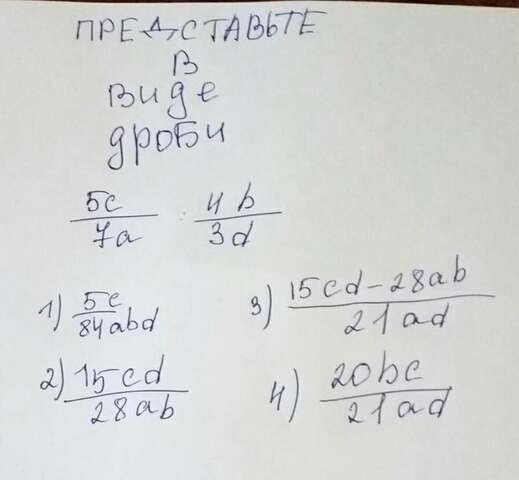 ПРЕДСТАВЬТЕ
В
виде
дроби
5c/7a : 4b/3d
1) 5c/84abd
2) 15cd/28ab
3) 15cd-28ab/21ad
4) 20bc/21ad